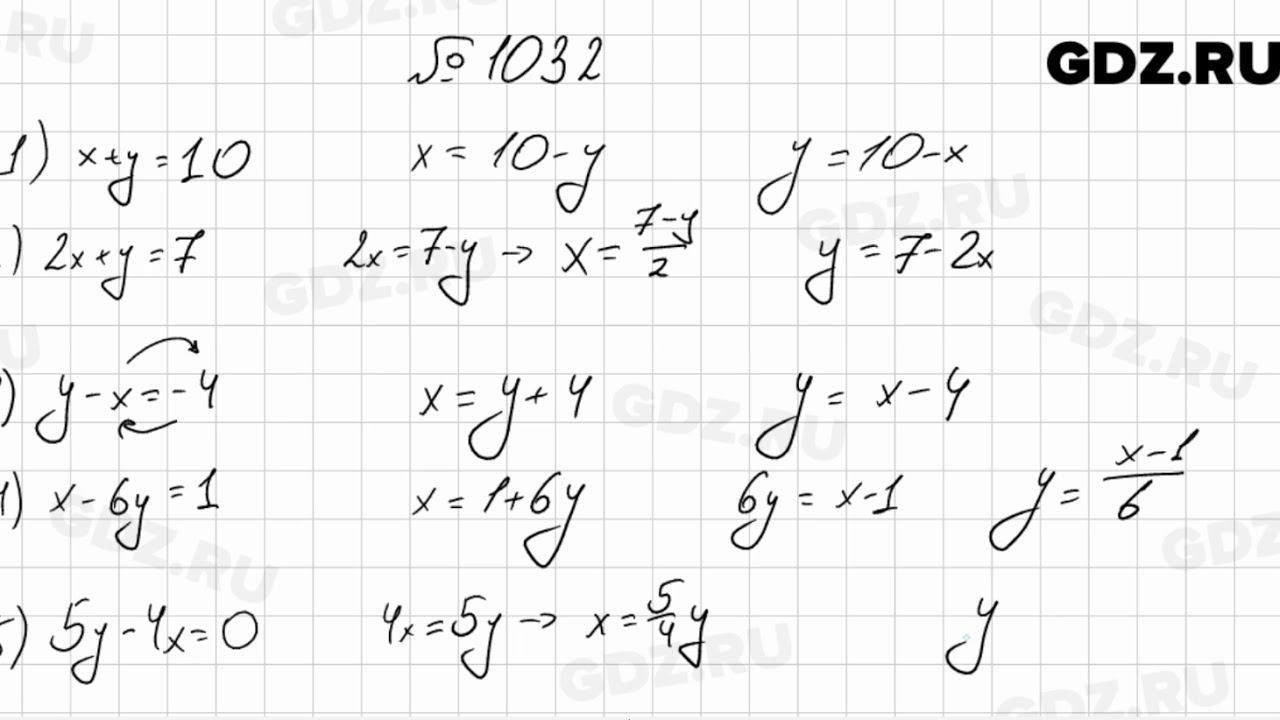 № 1032
GDZ.RU
1) x+y=10 x=10-y y=10-x
) 2x+y=7 2x=7-y→ x=7-y/2 y=7-2x
) y-x=-4 x=y+4 y=x-4
) x-6y=1 x=1+6y 6y=x-1 y=x-1/6
5) 5y-4x=0 4x=5y→ x=5/4y y